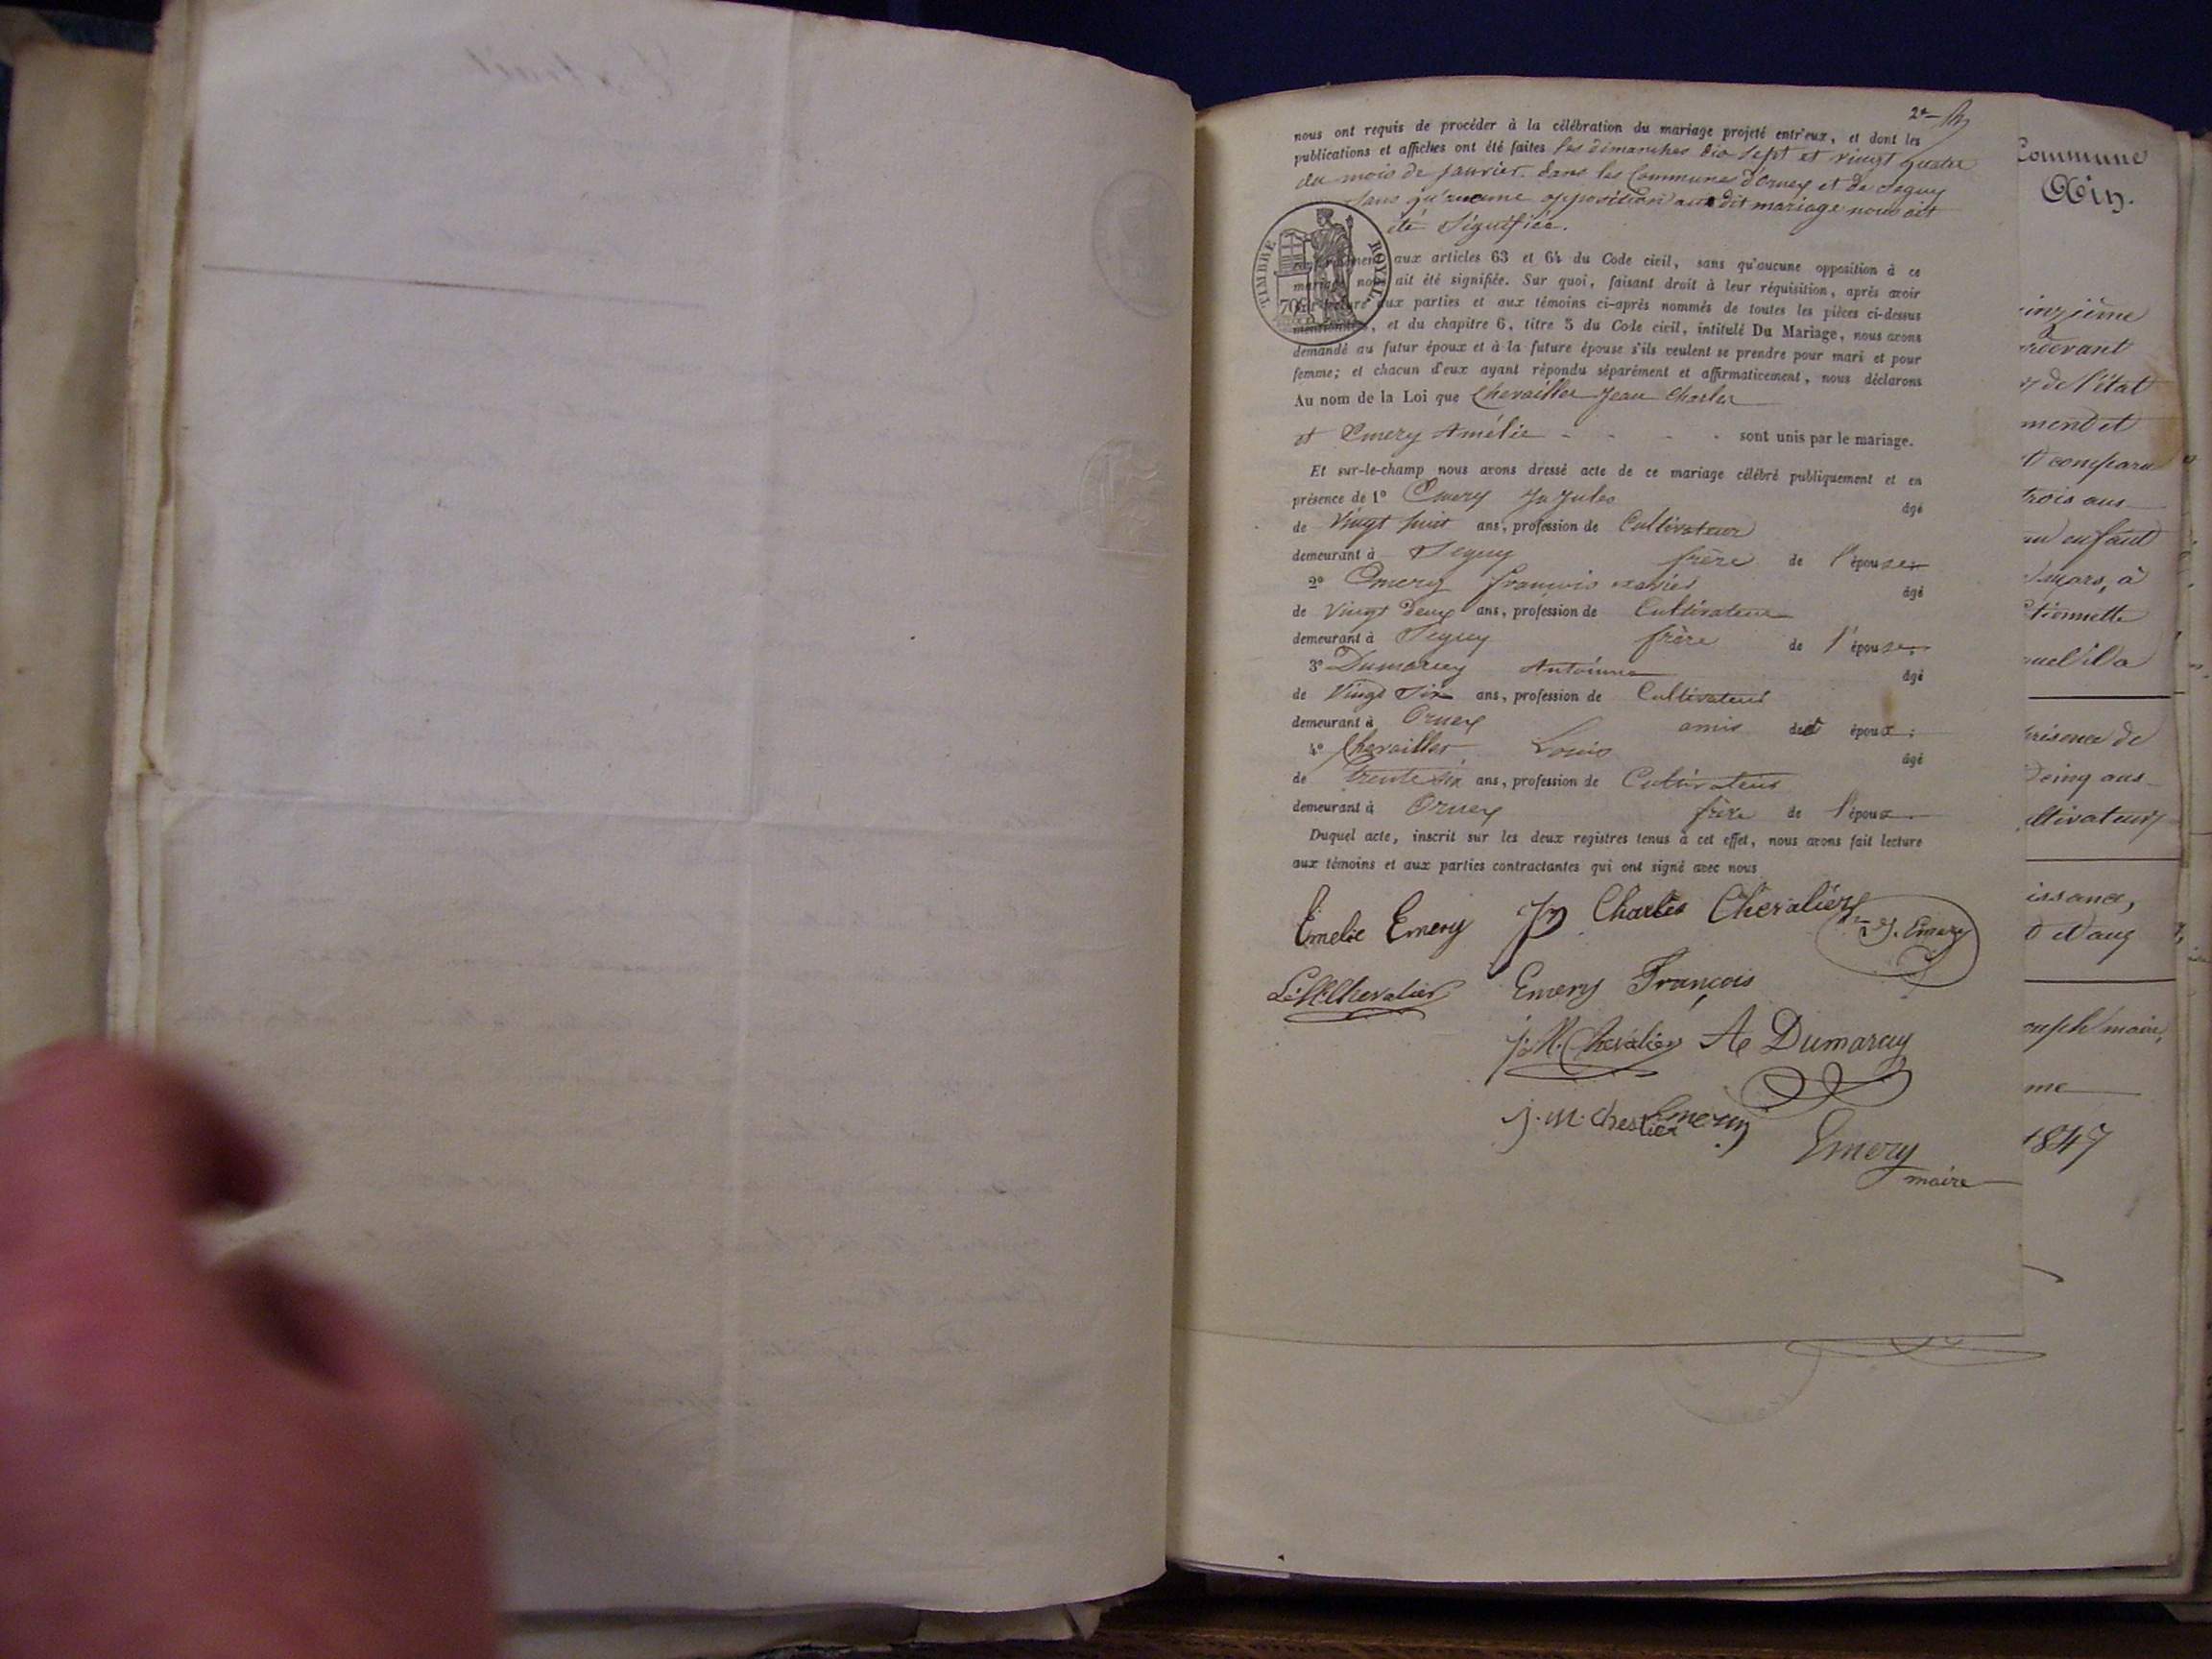 2e
nous ont requis de procéder à la célébration du mariage projeté entr'eux, et dont les
publications et affiches ont été faites les dimanches dix sept et vingt quatre
du mois de janvier dans les Communes d'Ornex et de Seguy
sans qu'aucune opposition au dit mariage nous ait
été signifiée.
TIMBRE ROYAL
70c
aux articles 63 et 64 du Code civil, sans qu'aucune opposition à ce
mariage nous ait été signifiée. Sur quoi, faisant droit à leur réquisition, après avoir
lecture aux parties et aux témoins ci-après nommés de toutes les pièces ci-dessus
mentionnées, et du chapitre 6, titre 5 du Code civil, intitulé Du Mariage, nous avons
demandé au futur époux et à la future épouse s'ils veulent se prendre pour mari et pour
femme; et chacun d'eux ayant répondu séparément et affirmativement, nous déclarons
Au nom de la Loi que Chevaillier Jean Charles
et Emery Amélie - - - - sont unis par le mariage.
Et sur-le-champ nous avons dressé acte de ce mariage célébré publiquement et en
présence de 1º Emery Jn Jules âgé
de vingt huit ans, profession de Cultivateur
demeurant à Seguy frère de l'épouse
2º Emery françois xavier âgé
de vingt deux ans, profession de Cultivateur
demeurant à Seguy frère de l'épouse;
3º Dumarey Antoinne âgé
de vingt six ans, profession de Cultivateur
demeurant à Ornex amis époux;
4º Chevaillier Louis âgé
de trente six ans, profession de Cultivateur
demeurant à Ornex frère de l'époux.
Duquel acte, inscrit sur les deux registres tenus à cet effet, nous avons fait lecture
aux témoins et aux parties contractantes qui ont signé avec nous
Emelie Emery Jn Charles Chevalier J. Emery
Chevalier Emery François
Chevalier Ae Dumarey
j. m. Emery
Emery
maire
Commune
Ain.
inzième
rdevant
de l'état
ment et
comparu
trois ans
enfant
mars, à
tiennette
quel il a
présence de
cinq ans
ltivateur
issance,
maire,
me
1847